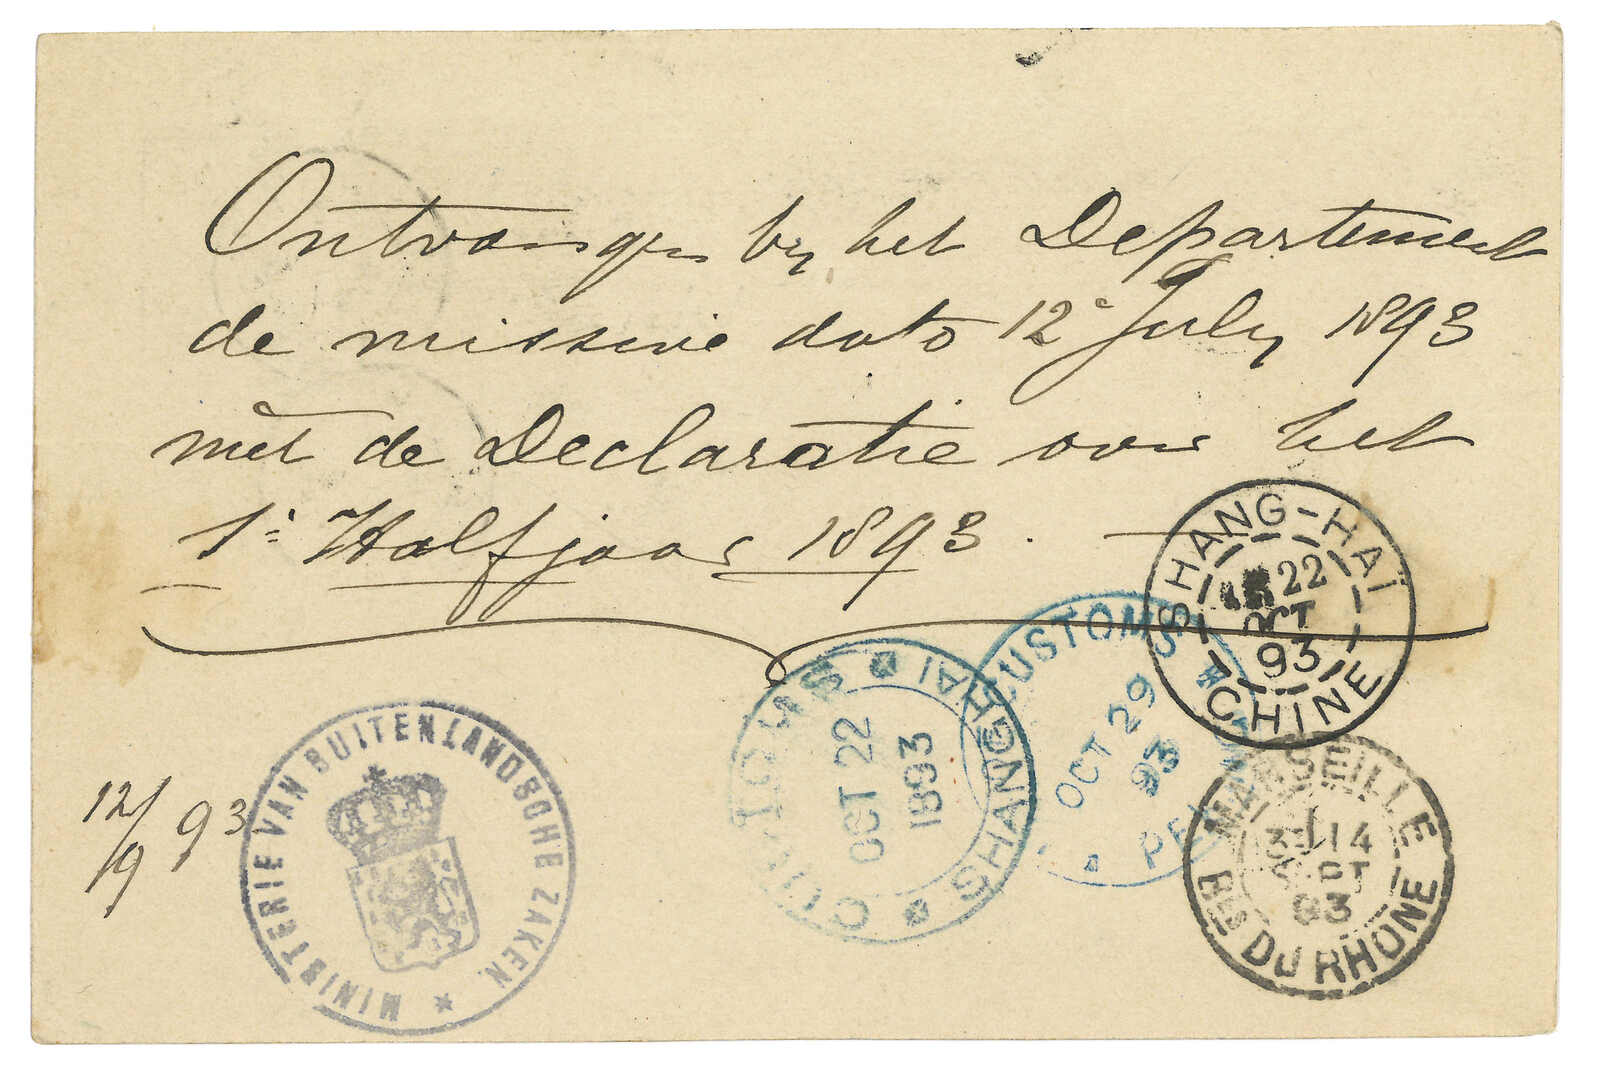 Ontvangen by het Departement
de missive dato 12e July 1893
met de Declaratie over het
1e Halfjaar 1893. —
12/9 93
MINISTERIE VAN BUITENLANDSCHE ZAKEN
CUSTOMS SHANGHAI
OCT 22
1893
CUSTOMS
OCT 29
93
SHANG-HAÏ
22
OCT
93
CHINE
MARSEILLE
14
SEPT
93
BES DU RHONE